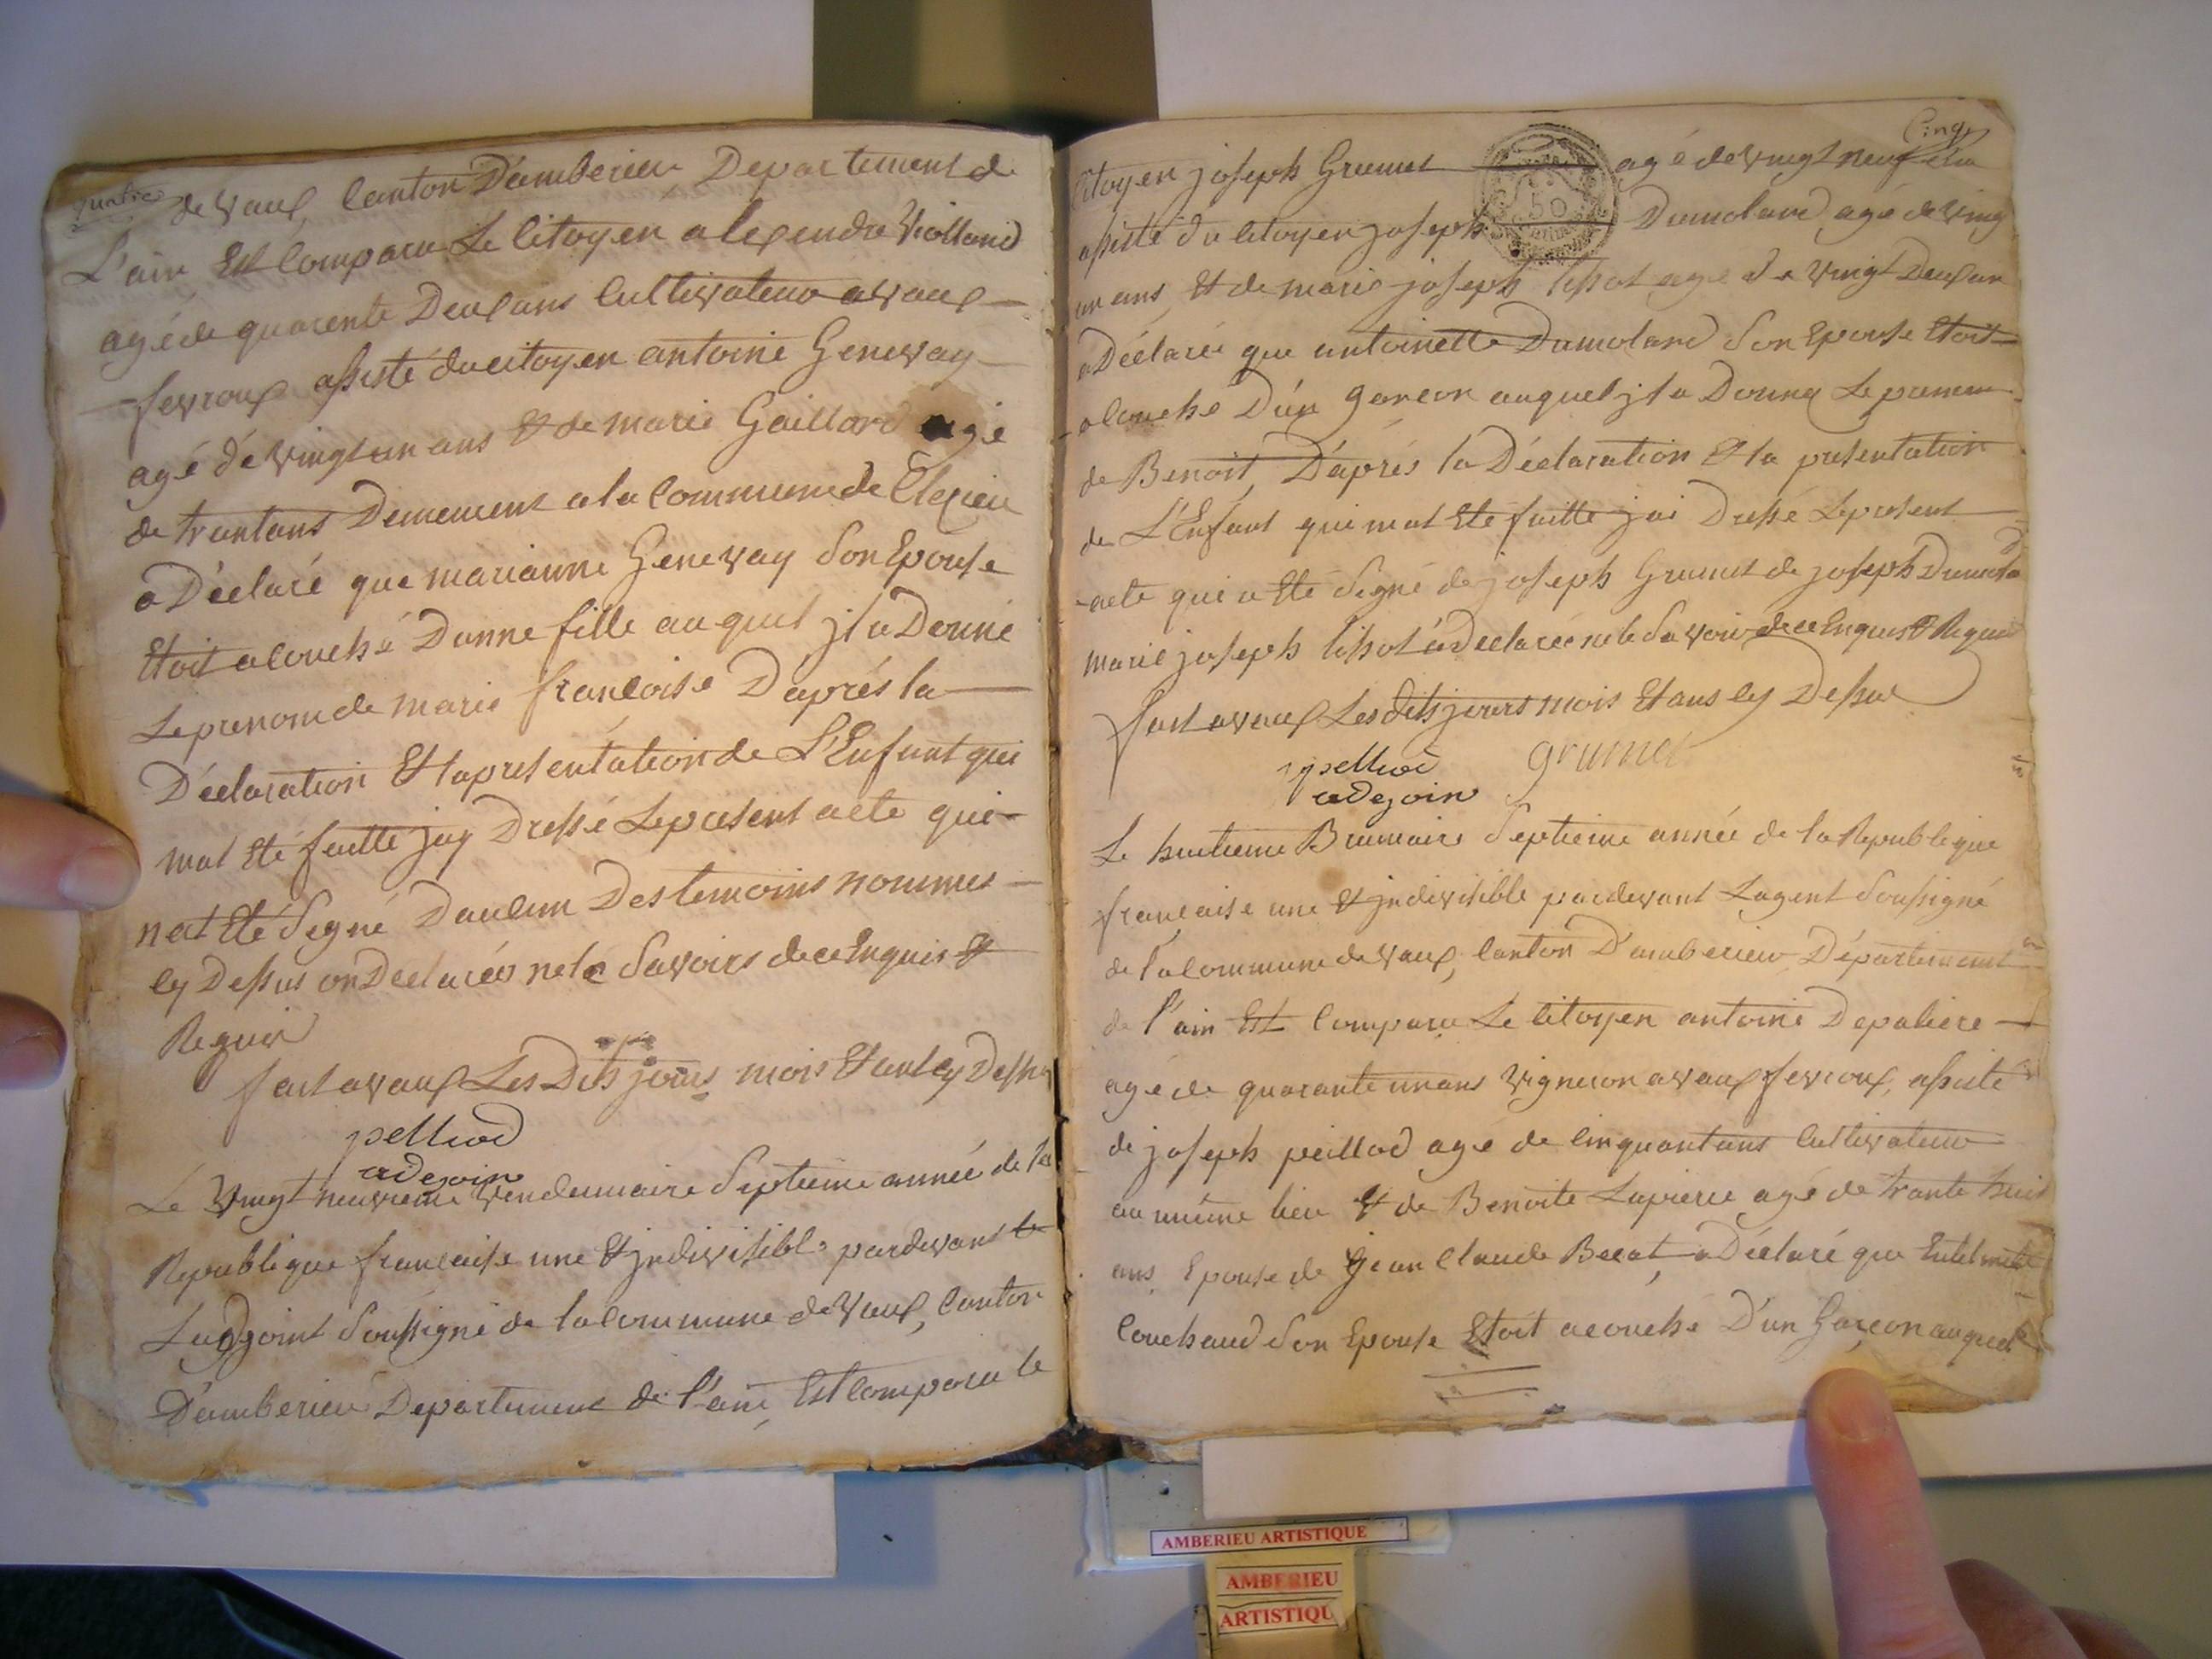 quatre
de vaux, Canton D'amberieu Departement de
L'ain Est Comparu Le Citoyen alexandre Violland
agé de quarente Deux ans Cultivateur a vaux
fevroux assisté du citoyen antoine Genevay
agé dé vingt un ans & de marie Gaillard agé
de trantans Demeurent a la Commune de
a Déclaré que marianne Genevay Son Epouse
Etoit acouché Dunne fille au quel jl a Donné
Le prenom de marie francoise D'aprés la
Déclaration Et la presentation de L'Enfant qui
mat Eté faitte jay Dressé Le present acte qui
nat Eté Segné Daucun Des temoins nommes
cy Dessus on Declarés ne le Savoirs de ce Enquis &
Requis
fait a vaux Les Dits jours mois Et ans cy Dessus
pelliod
adejoin
Le vingt neuvieme vendemiaire Septieme année de la
Republique francaise une & jndivisible pardevant le
Ladjoint Soussigné de la Commune de Vaux, Canton
D'amberieu Departement de l'ain Est Comparu le
Cinq
Citoyen joseph Grumet agé de vingt neuf ans
50
assisté du Citoyen joseph Dumolard agé de ving
un ans Et de marie joseph agé de vingt Deux an
a Déclaré que antoinette Dumolard Son Epouse Etoit
acouche D'un garcon auquel jl a Donné Le prenom
de Benoit, D'aprés la Déclaration & la presentation
de L'Enfant qui mat Eté faitte jai Dressé Le present
acte qui a Eté Segné de joseph Grumet de joseph
marie joseph a Declarée ne le Savoir de ce Enquis & Requis
fait a vaux Les dits jours mois Et ans cy Dessus
pelliod
adejoin
grumet
Le huitieme Brumaire Septieme année de la Republique
francaise une & jndivisible pardevant Lagent Soussigné
de la Commune de vaux, Canton D'amberieu Département
de l'ain Est Comparu Le Citoyen antoine Depaliere
agé de quarante un ans vigneron a vaux fevroux, assisté
de joseph peillod agé de Cinquantans Cultivateur
au même lieu & de Benoite Lapierre agé de trante huit
ans Epouse de jean Claude Becat, a Déclaré que
Couchaud Son Epouse Etoit acouché D'un Garcon auquel
AMBERIEU ARTISTIQUE
AMBERIEU
ARTISTIQU